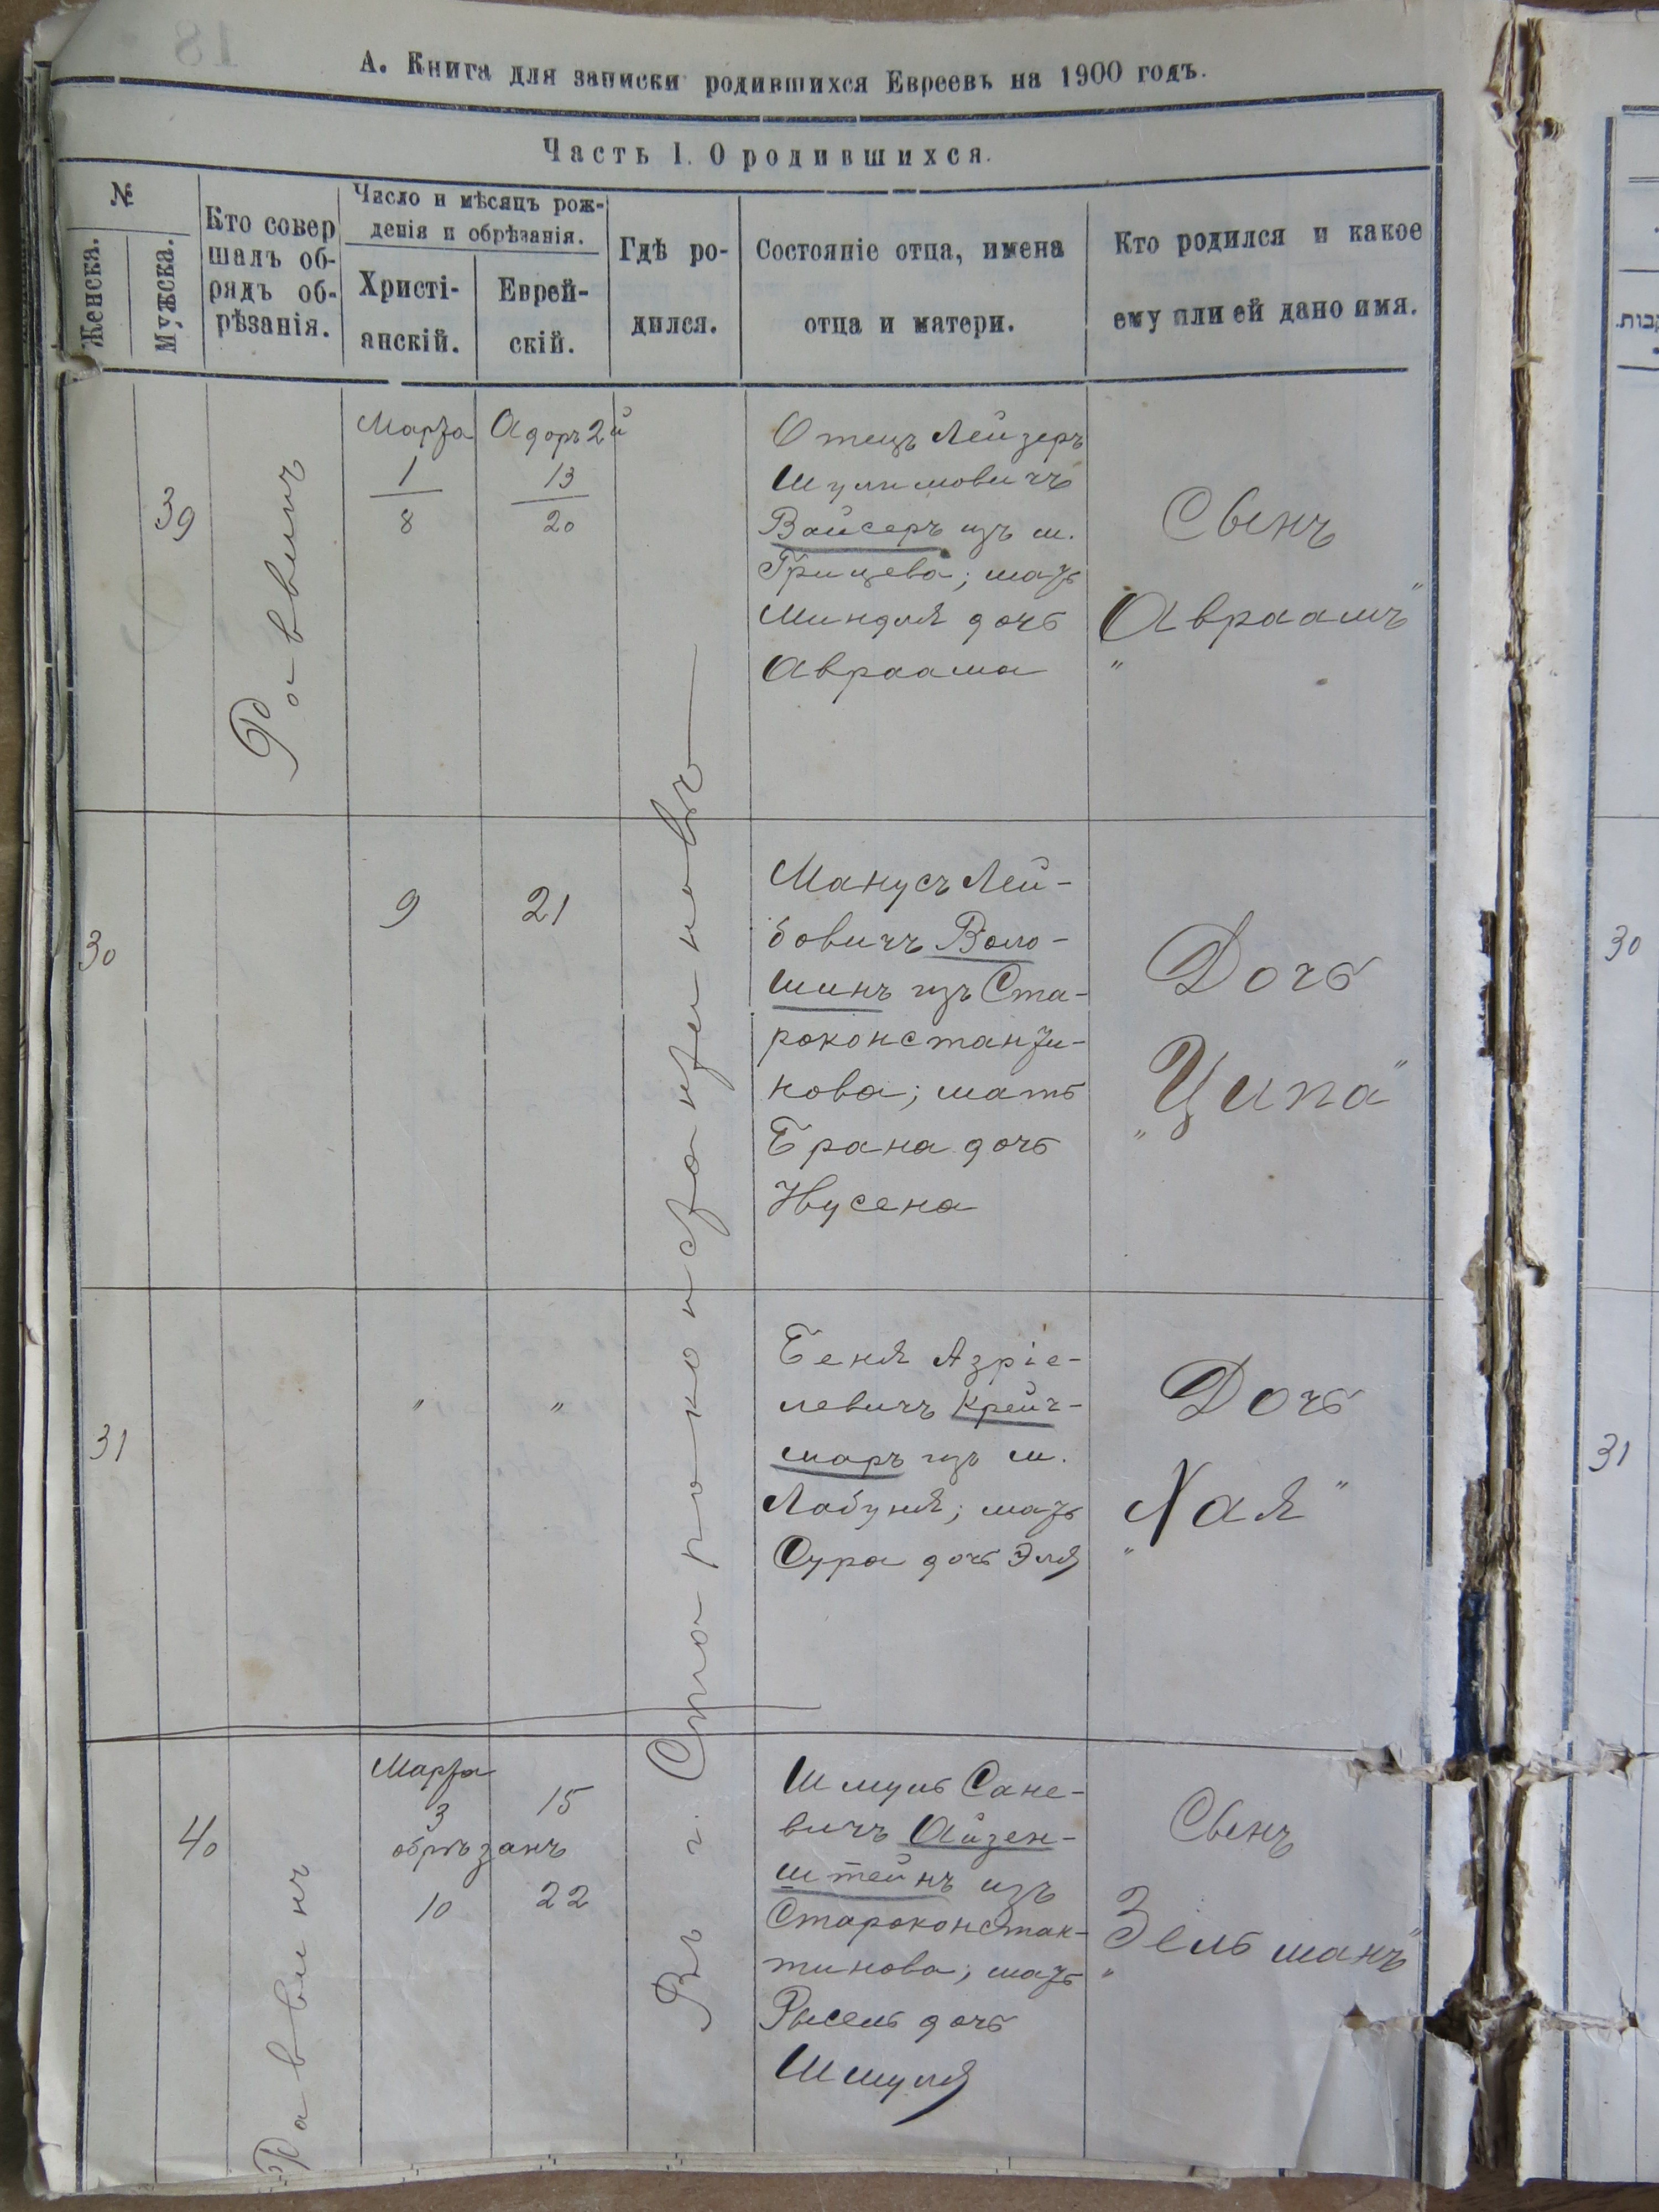 А. Книга для записки родившихся Евреевъ на 1900 годъ.
Часть I. О родившихся.
№
Женска.
Мужска.
Кто совер
шалъ об-
рядъ об-
рѣзанія.
Число и мѣсяцъ рож-
денія и обрѣзанія.
Христі-
анскій.
Еврей-
скій.
Гдѣ ро-
дился.
Состояніе отца, имена
отца и матери.
Кто родился и какое
ему или ей дано имя.
39
Раввинъ
Марта
1
8
Адоръ 2й
13
20
Въ г. Староконстантиновъ
Отецъ Лейзеръ
Шулимовичъ
Вайсеръ изъ м.
Грицева; мать
Миндля дочь
Авраама
Сынъ
"Авраамъ"
30
9
21
Манусъ Лей-
бовичъ Воло-
шинъ изъ Ста-
роконстанти-
нова; мать
Брана дочь
Нусена
Дочь
"Ципа"
30
31
"
"
Беня Азріе-
левичъ Крейч-
маръ изъ м.
Лабуня; мать
Сура дочь Эля
Дочь
"Хая"
31
40
Раввинъ
Марта
3
15
обрѣзанъ
10
22
Шмуль Сане-
вичъ Айзен-
штейнъ изъ
Староконстан-
тинова; мать
Рысель дочь
Шмуля
Сынъ
"Зельманъ"